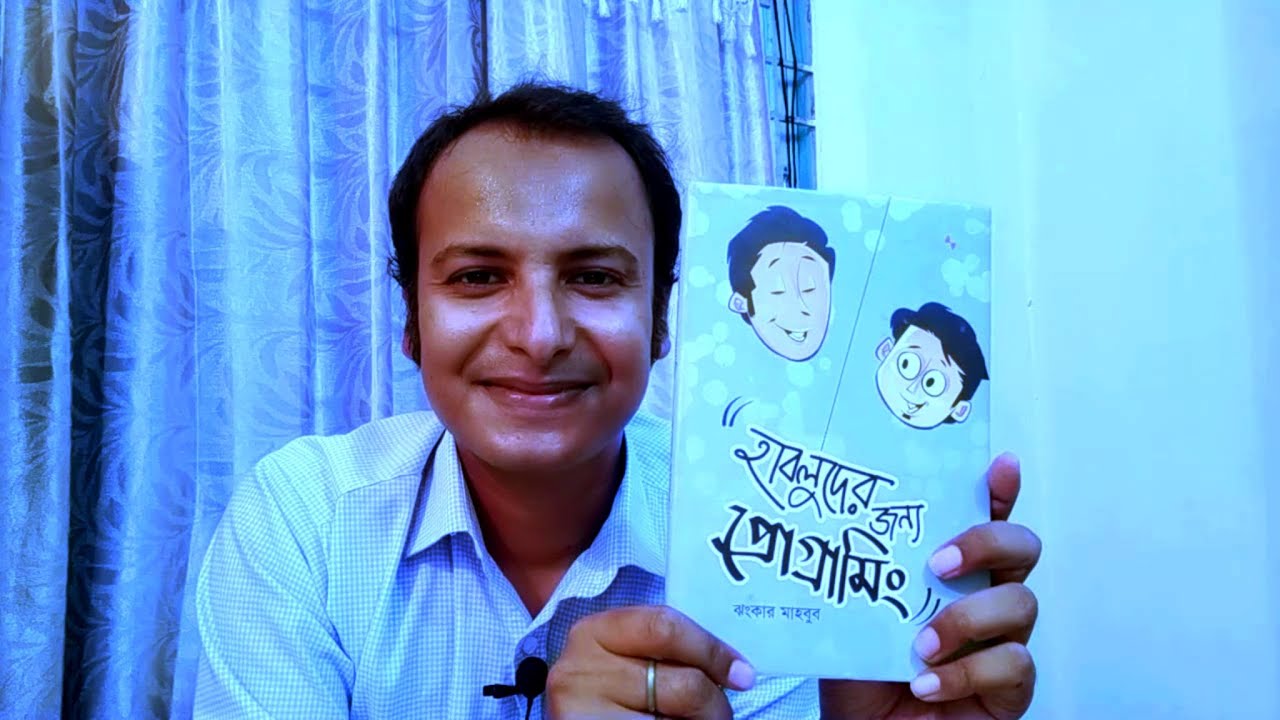 "হাবলুদের
জন্য
প্রোগ্রামিং"
ঝংকার মাহবুব